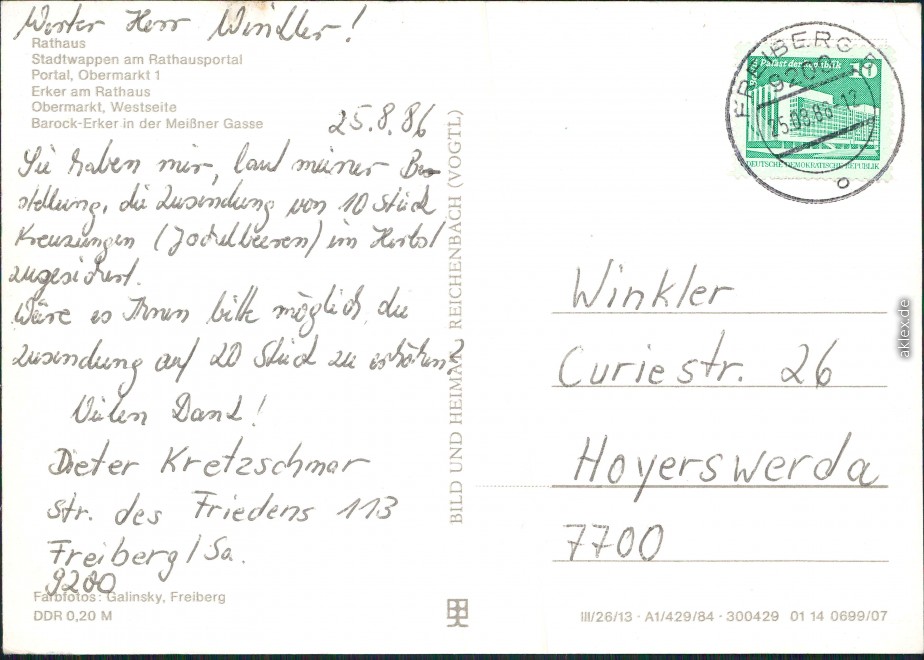 Werter Herr Winkler!
Rathaus
Stadtwappen am Rathausportal
Portal, Obermarkt 1
Erker am Rathaus
Obermarkt, Westseite
Barock-Erker in der Meißner Gasse
25.8.86
Sie haben mir, laut meiner Be-
stellung, die Zusendung von 10 Stück
Kreuzungen (Jochelbeeren) im Herbst
zugesichert.
Wäre es Ihnen bitte möglich, die
Zusendung auf 20 Stück zu erhöhen?
Vielen Dank!
Dieter Kretzschmar
Str. des Friedens 113
Freiberg/Sa.
9200
Farbfotos: Galinsky, Freiberg
DDR 0,20 M
BILD UND HEIMAT REICHENBACH (VOGTL)
FREIBERG
9200
25.08.86-12
o
Palast der Republik
10
DEUTSCHE DEMOKRATISCHE REPUBLIK
Winkler
Curiestr. 26
Hoyerswerda
7700
III/26/13 · A1/429/84 · 300429 01 14 0699/07
aklex.de